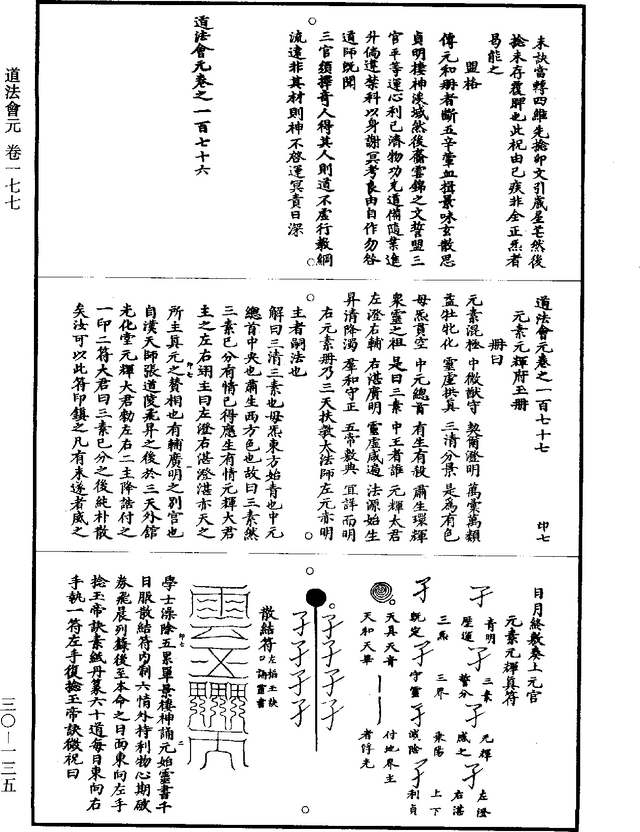 道法會元 卷一七七
三〇—一三五
未訣當轉四維先捻卯文引歲星芒然後
捻未存覆腳也此祝由已疾非全正炁者
曷能之
盟格
傳元和冊者斷五辛葷血揖景味玄散思
貞明棲神溟域然後齎雲錦之文誓盟三
官平等運心利己濟物功充道備隨業進
升倘違禁科以身謝冥考良由自作勿咎
道師既聞
三官須擇奇人得其人則道不虛行教綱
流違非其材則神不啓運冥責日深
道法會元卷之一百七十六
道法會元卷之一百七十七 印七
元素元輝府玉冊
冊曰
元素混極 中微猷守 契爾澄明 萬彙萬類
益牡牝化 靈虛拱真 三清分景 是爲有色
母炁真空 中元總首 有生有殺 肅生環輝
衆靈之祖 是曰三素 中王者誰 元輝太君
左澄右輔 右湛廣明 靈虛咸適 法源始生
昇清降濁 羣和守正 五帝敷典 宜詳而明
右元素冊乃三天扶教大法師左元亦明
主者嗣法也
解曰三清三素也母炁東方始青也中元
總首中央也肅生西方色也故曰三素然
三素已分有情已得應生有情元輝大君
主之左右翊主曰左澄右湛澄湛亦天之
所主真元之贊相也有輔廣明之別宮也
自漢天師張道陵飛昇之後於三天外館
光化堂元輝大君勑左右二主降誥付之
一印二符大君曰三素已分之後純朴散
矣汝可以此符印鎮之凡有未遂者咸之
日月終數奏上元官
元素元輝真符
青明
歷運
三素
誓分
元輝
咸之
左澄
右湛
三炁
既定
三界
守靈
乘陽
滅陰
上下
利貞
天真天青
天和天畢
付地界主
者俘光
散結符 左掐玉訣 口誦靈書
學士澡除五累單景棲神誦元始靈書千
日服散結符內制六情外持利物心期破
券飛晨列籙後至本命之日面東向左手
捻玉帝訣素紙丹篆六十道每日東向右
手執一符左手復捻玉帝訣微祝曰